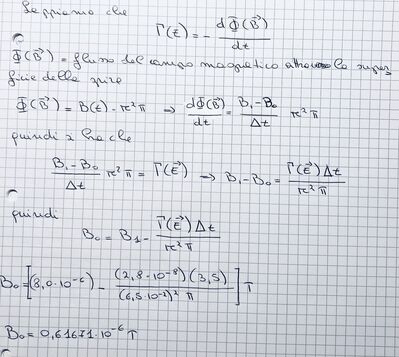 Sappiamo che
Γ(E⃗) = - dΦ(B⃗)/dt
Φ(B⃗) = flusso del campo magnetico attraverso la super
ficie della spira
Φ(B⃗) = B(t) · r² π ⇒ dΦ(B⃗)/dt = B₁ - B₀/Δt r² π
quindi si ha che
B₁ - B₀/Δt r² π = Γ(E⃗) → B₁ - B₀ = Γ(E⃗) Δt/r² π
quindi
B₀ = B₁ - Γ(E⃗) Δt/r² π
B₀ = [(8,0·10⁻⁶) - (2,8·10⁻⁸)(3,5)/(6,5·10⁻²)² π] T
B₀ = 0,61671·10⁻⁶ T